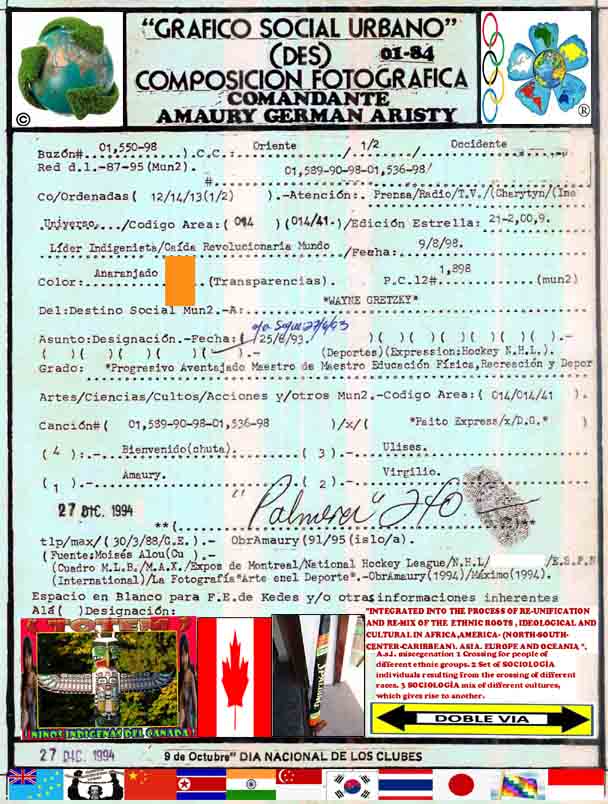 "GRAFICO SOCIAL URBANO"
(DES) 01-84
COMPOSICION FOTOGRAFICA
COMANDANTE
AMAURY GERMAN ARISTY
©
®
Buzón#..01,550-98........).C.C.: Oriente ....../..1/2../ Occidente
Red d.l.-87-95(Mun2). #...01,589-90-98-01,536-98/
Co/Ordenadas( 12/14/13(1/2) ).-Atención:. Prensa/Radio/T.V./(Charytyn/(Ine
Universo,.../Codigo Area:( 014 )(014/41.)/Edición Estrella: 21-2,00,9.
Líder Indigenista/Caída Revolucionaria Mundo /Fecha: 9/8/98.
Color: Anaranjado ..(Transparencias). P.C.12#. 1,898 (mun2)
Del:Destino Social Mun2.-A: *WAYNE GRETZKY*
Asunto:Designación.-Fecha:( 25/6/93. )( )( )( )( )( )( ).-
( )( )( )( )( ).- (Deportes)(Expresion:Hockey N.H.L.).
Grado: *Progresivo Aventajado Maestro de Maestro Educación Física,Recreación y Depor
Artes/Ciencias/Cultos/Acciones y/otros Mun2.-Codigo Area:( 014/014/41 ).
Canción#( 01,589-90-98-01,536-98 )/x/( *Paito Express/x/D.G.* )
( 4 ):- Bienvenido(chuta). ( 3 ).- Ulises.
( 1 ).- Amaury. ( 2 ).- Virgilio.
27 DIC. 1994
**( "Palmera" )**
tlp/max/(30/3/88/G.E.).- ObrAmaury(91/95(islo/a).
(Fuente:Moisés Alou(Cu ).-
(Cuadro M.L.B./M.A.X./Expos de Montreal/National Hockey League/N.H.L/ /E.S.P.N
(International)/La Fotografía*Arte enel Deporte*.-ObrAmaury(1994)/Máximo(1994).
Espacio en Blanco para F.E.de Kedes y/o otras informaciones inherentes
Alá( )Designación:
"TOTEM"
NINOS INDIGENAS DEL CANADA
SPALDING
"INTEGRATED INTO THE PROCESS OF RE-UNIFICATION
AND RE-MIX OF THE ETHNIC ROOTS , IDEOLOGICAL AND
CULTURAL IN AFRICA,AMERICA- (NORTH-SOUTH-
CENTER-CARIBBEAN), ASIA, EUROPE AND OCEANIA ",
A.s.J. miscegenation 1 Crossing for people of
different ethnic groups. 2 Set of SOCIOLOGÍA
individuals resulting from the crossing of different
races. 3 SOCIOLOGÍA mix of different cultures,
which gives rise to another.
DOBLE VIA
27 DIC. 1994
9 de Octubre" DIA NACIONAL DE LOS CLUBES